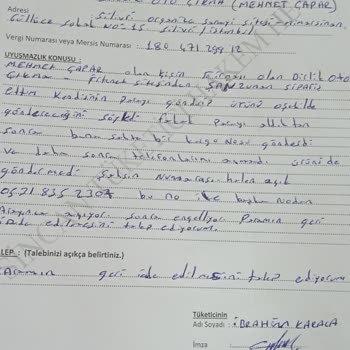 OTO ÇIKMA (MEHMET ÇAPAR)
Adresi : Silivri organize sanayi sitesi mimarsinan
Güllüce sokak No:15 Silivri / İstanbul
Vergi Numarası veya Mersis Numarası : 180 471 299 12
UYUŞMAZLIK KONUSU :
MEHMET ÇAPAR olan kişin firması olan Dirlik Oto
Çıkma sitesinden ŞANZUMAN sipariş
ettim Kendisinin Parayı gönderip ürünü o şekilde
göndereceğini söyledi fakat Parayı aldıktan
sonra bana sahte bir kargo gönderdi
ve daha sonra telefonlarımı açmadı ürünü de
göndermedi Şahsın Numarası halen açık
0521 835 2307 bu no ile başka neden
Arayınca açıyor sonra engelliyor Paramın geri
iade edilmesini talep ediyorum
LEP : (Talebinizi açıkça belirtiniz.)
Paramın geri iade edilmesini talep ediyorum
Tüketicinin
Adı Soyadı : İBRAHİM KARACA
İmza